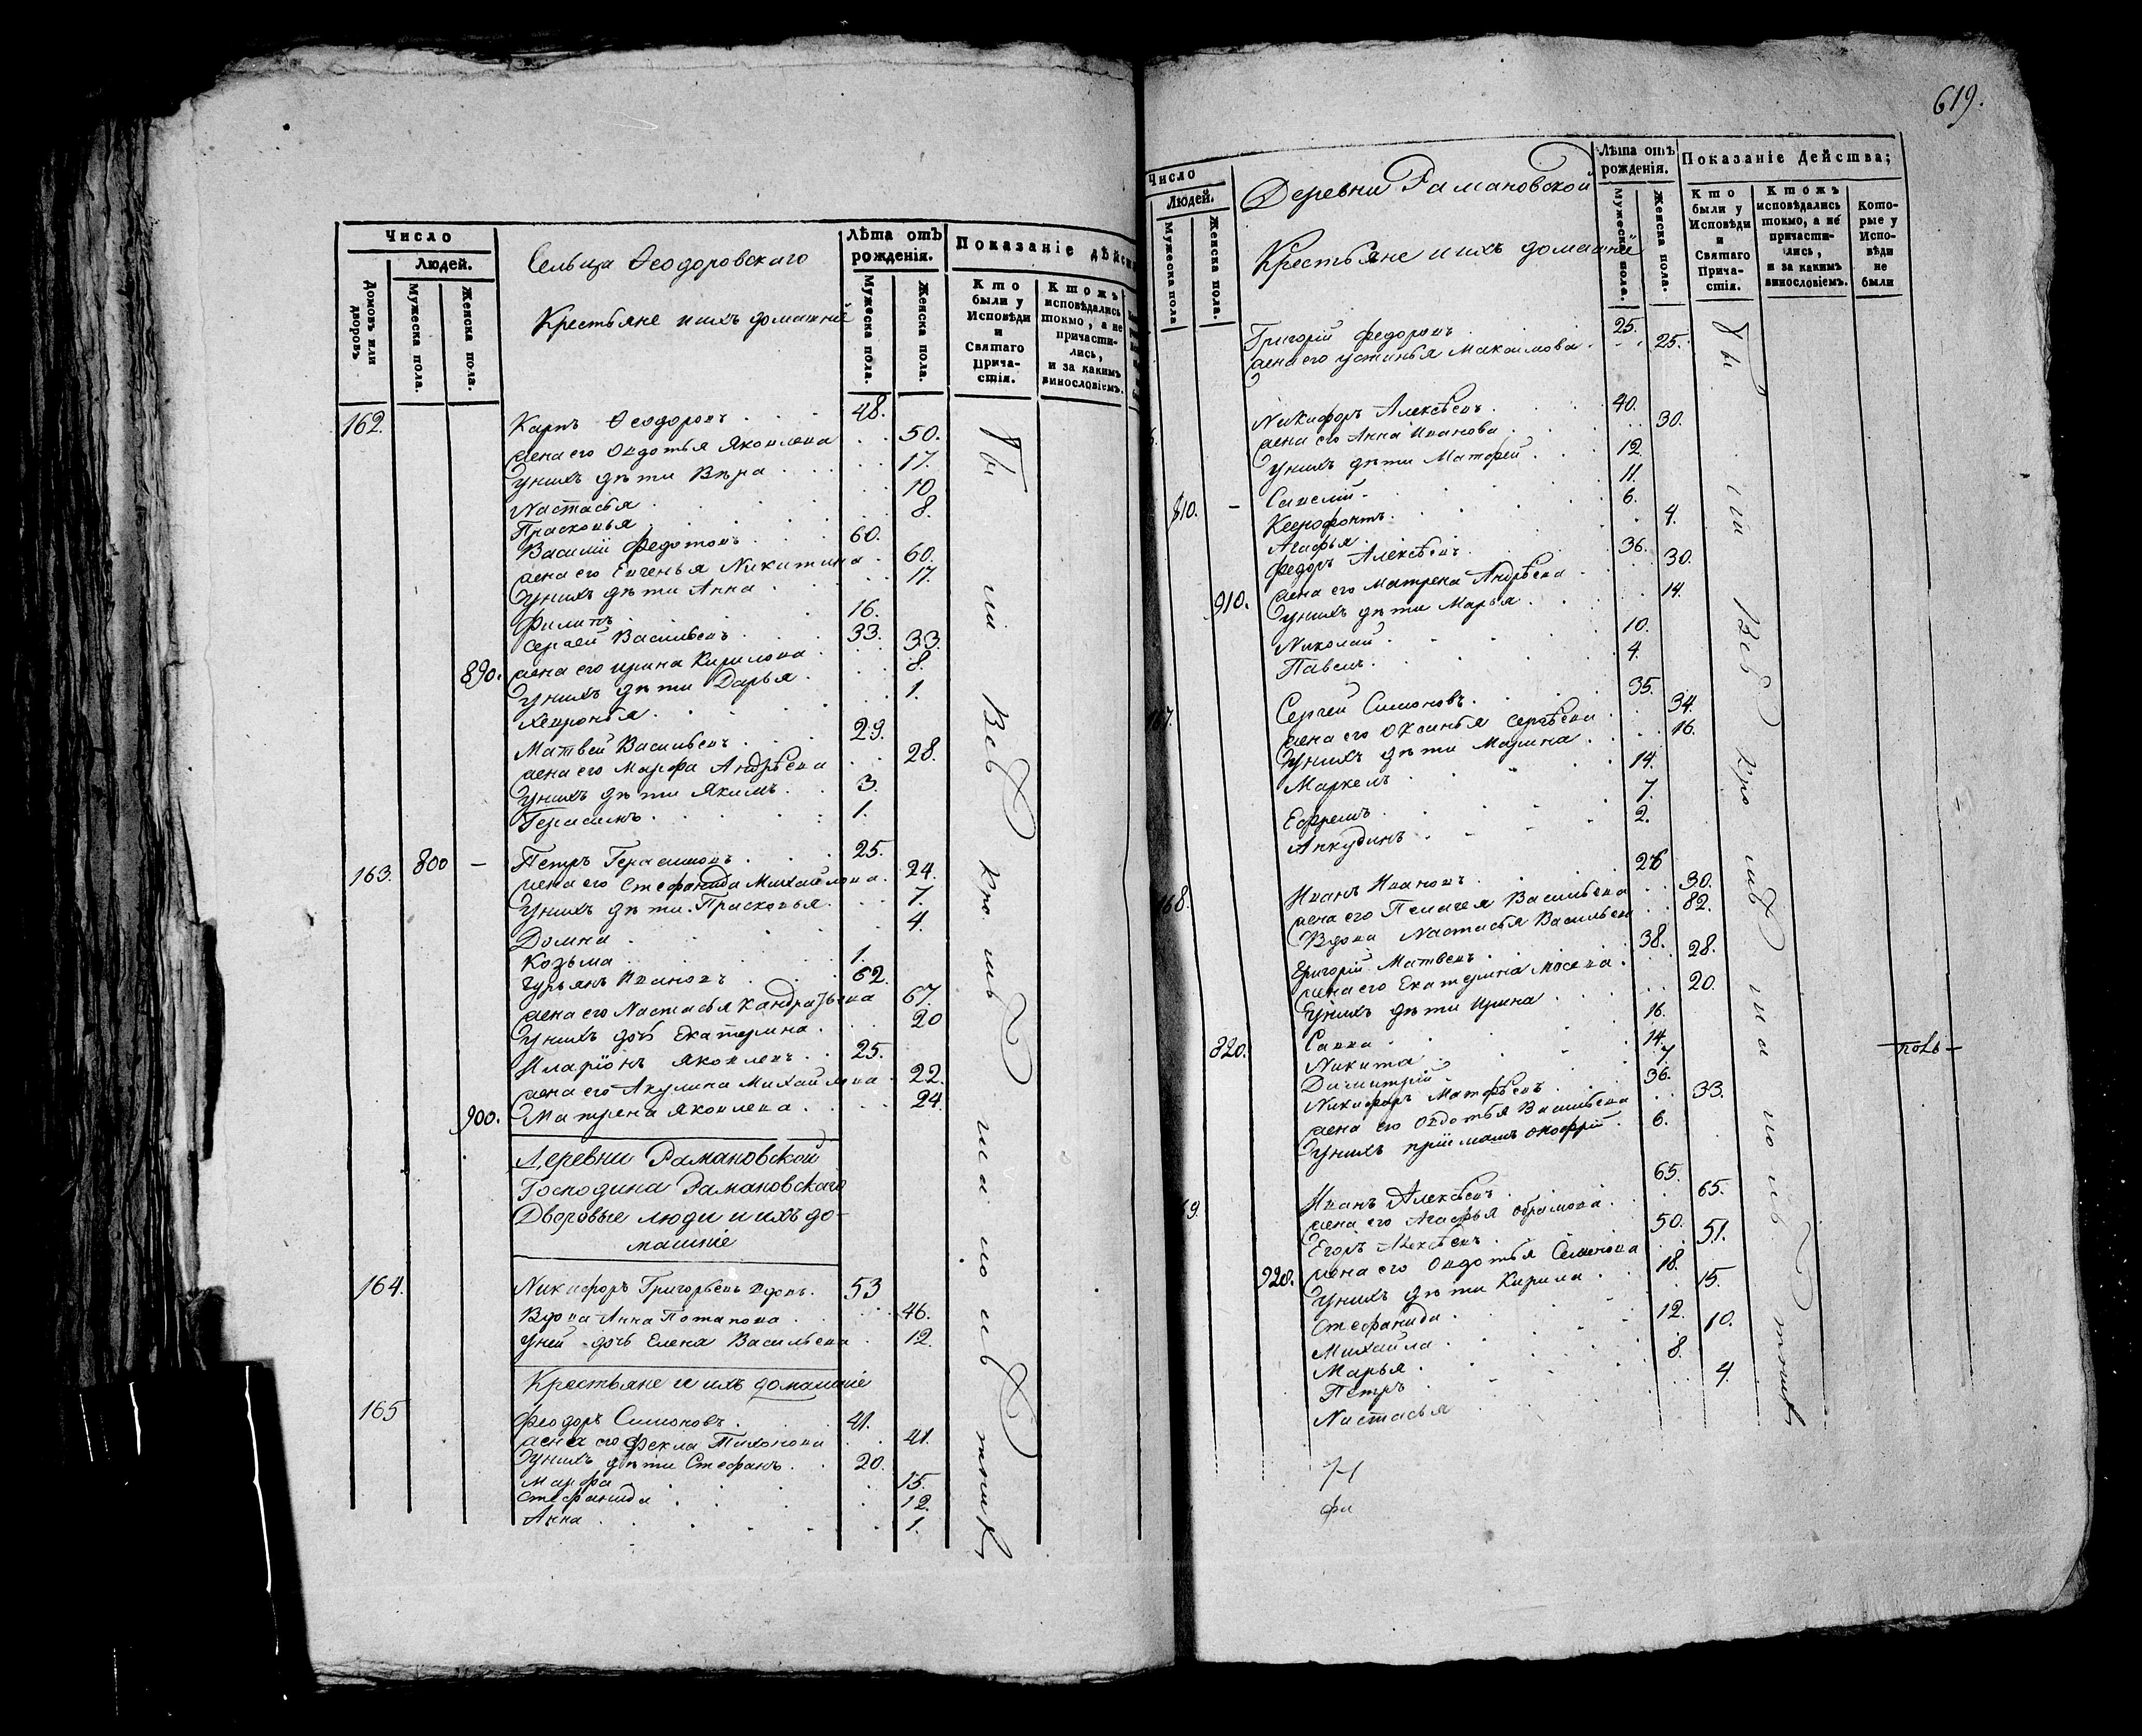 Число
Людей.
Домовъ или дворовъ
Мужеска пола.
Женска пола.
Сельца Ѳеодоровскаго
Крестьяне и ихъ домашнiе
Лѣта отъ рожденiя.
Мужеска пола.
Женска пола.
Показанiе дѣйс
Кто были у Исповѣди и Святаго Прича-стiя.
Ктожъ исповѣдались токмо, а не причасти-лись, и за какимъ винословiемъ.
162. Карпъ Ѳеодоровъ 48.
жена его Овдотья Яковлева 50.
У нихъ дѣти Вѣра 17.
Настасья 10
Прасковья 8.
Василiй Федотовъ 60.
жена его Евгенья Никитина 60.
У нихъ дѣти Анна 17.
Филипъ 16.
Сергей Васильевъ 33.
890. жена его Ирина Кирилова 33.
У нихъ дѣти Дарья 8.
Хевронья 1.
Матвей Васильевъ 29.
жена его Марфа Андрѣева 28.
У нихъ дѣти Якимъ 3.
Герасимъ 1.
163. 800 – Петръ Герасимовъ 25.
жена его Стефанида Михайлова 24.
У нихъ дѣти Прасковья 7.
Домна 4.
Козьма 1.
Гурьянъ Ивановъ 62.
жена его Настасья Кандратьева 67.
У нихъ дочь Екатерина 20
Иларiонъ Яковлевъ 25.
жена его Акулина Михайлова 22.
900. Матрена Яковлева 24.
Деревни Рамановской
Господина Рамановскаго
Дворовые люди и ихъ до-
машнiе
164. Никифоръ Григорьевъ вдовъ 53
Вдова Анна Потапова 46.
У ней дочь Елена Васильева 12.
Крестьяне и ихъ домашнiе
165 Феодоръ Симоновъ 41.
жена его Фекла Тихонова 41.
У нихъ дѣти Стефанъ 20.
Марфа 15.
Стефанида 12.
Анна 1.
619.
Число
Людей.
Мужеска пола
Женска пола.
Деревни Рамановской
Крестьяне и ихъ домашнiе
Лѣта отъ рожденiя.
Мужеска пола.
Женска пола.
Показанiе Действа;
Кто были у Исповѣди и Святаго Прича-стiя.
Ктожъ исповѣдались токмо, а не причасти-лись, и за какимъ винословiемъ.
Кото-рые у Испо-вѣди не были
Григорiй Федоровъ 25.
жена его Устинья Максимова 25.
Никифоръ Алексѣевъ 40.
жена его Анна Иванова 30.
У нихъ дѣти Матфей 12.
810. – Савелiй 11.
Ксенофонтъ 6.
Агафья 4.
Федоръ Алексѣевъ 36.
910. жена его Матрена Андрѣева 30.
У нихъ дѣти Марья 14.
Николай 10.
Павелъ 4.
Сергей Симоновъ 35.
жена его Оксинья Сергѣева 34.
У нихъ дѣти Марина 16.
Маркелъ 14.
Ефремъ 7.
Анкудинъ 2.
Иванъ Ивановъ 26
жена его Пелагея Васильева 30.
Вдова Настасья Васильева 82.
Григорiй Матвеевъ 38.
жена его Екатерина Мосева 28.
У нихъ дѣти Ирина 20.
820. Савва 16.
Никита 14.
Димитрiй 7
Никифоръ Матфѣевъ 36.
жена его Овдотья Васильева 33.
У нихъ прiимашъ Онофрiй 6.
Иванъ Алексѣевъ 65.
жена его Агафья Обрамова 65.
Егоръ Алексѣевъ 50.
920. жена его Овдотья Семенова 51.
У нихъ дѣти Кирила 18.
Стефанида 15.
Михайла 12.
Марья 10.
Петръ 8.
Настасья 4.